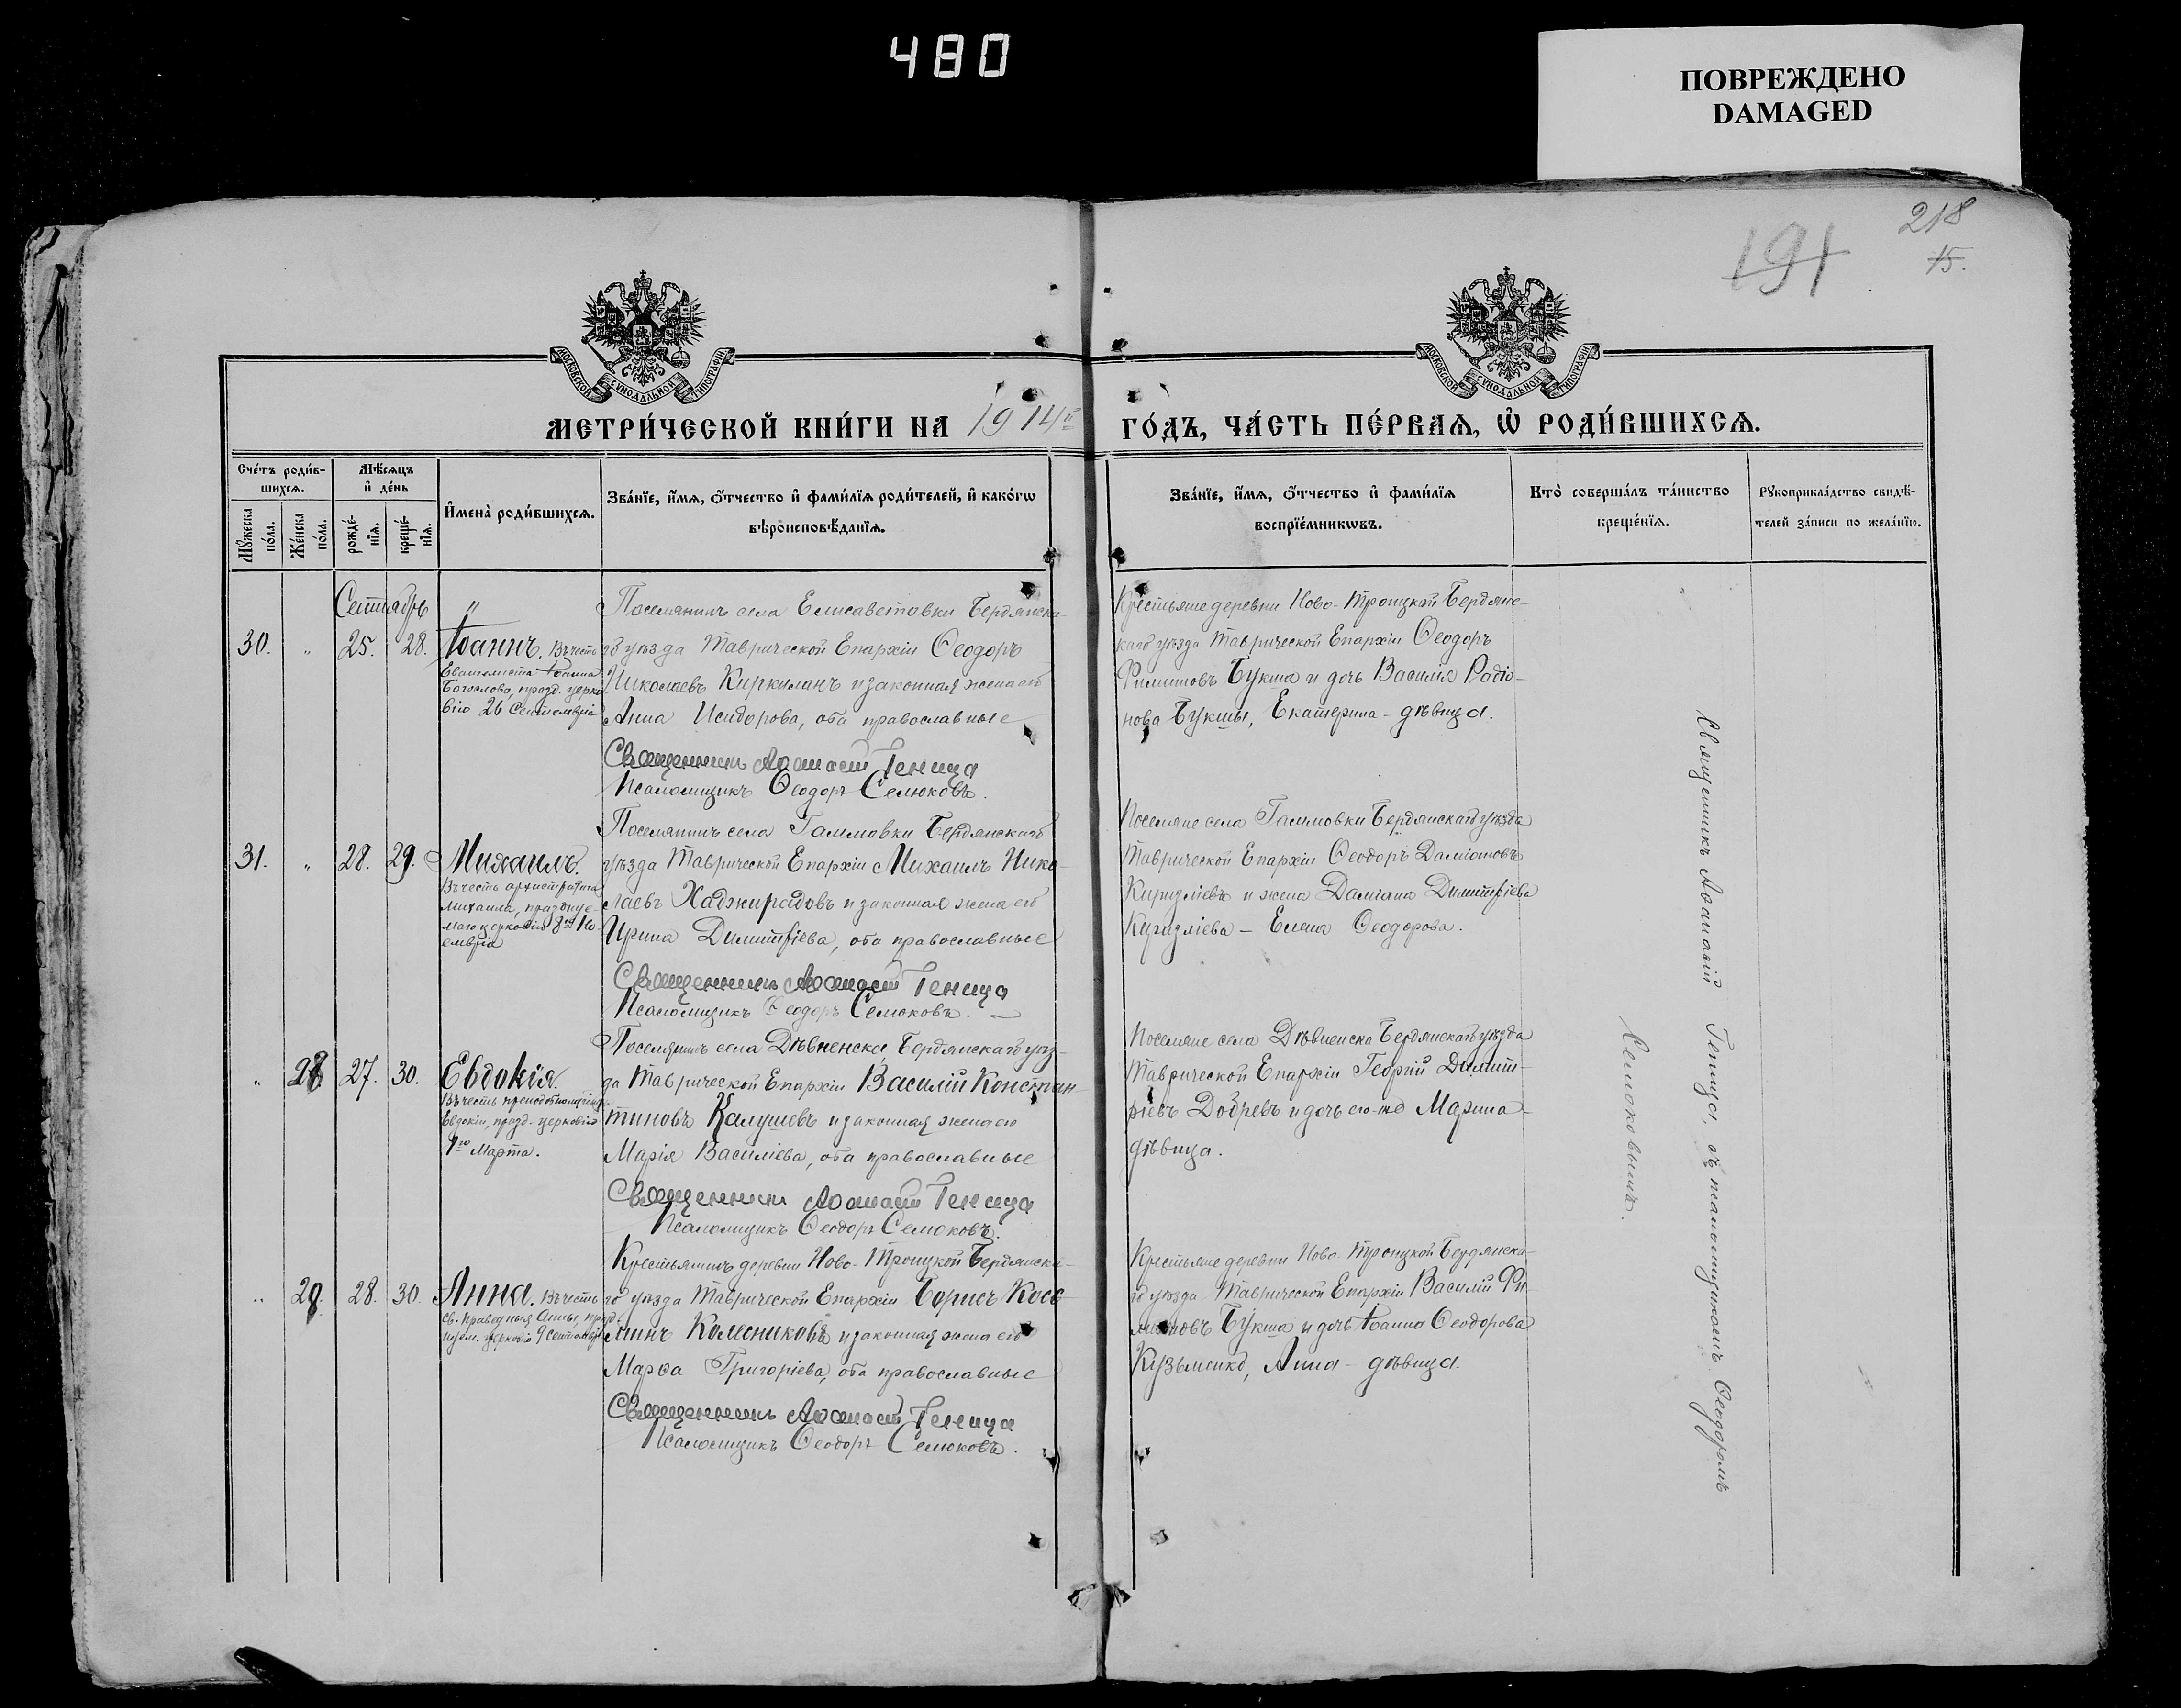 480
ПОВРЕЖДЕНО
DAMAGED
218
191
15.
МОСКОВСКОЙ СѴНОДАЛЬНОЙ ТИПОГРАФІИ
МОСКОВСКОЙ СѴНОДАЛЬНОЙ ТИПОГРАФІИ
МЕТРИ́ЧЕСКОЙ КНИ́ГИ НА 1914й
ГО́ДЪ, ЧА́СТЬ ПЕ́РВАѦ, Ѽ РОДИ́ВШИХСѦ.
Сче́тъ роди́в-
шихсѧ.
Мѣ́сѧцъ
и҆ де́нь
Мꙋ́жеска по́ла.
Же́нска по́ла.
рожде́-
нїѧ.
креще́-
нїѧ.
И҆мена̀ роди́вшихсѧ.
Зва́нїе, и҆́мѧ, ѻ҆́тчество и҆ фами́лїѧ роди́телей, и҆ како́гѡ
вѣроисповѣ́данїѧ.
Зва́нїе, и҆́мѧ, ѻ҆́тчество и҆ фами́лїѧ
воспрїе́мникѡвъ.
Кто̀ соверша́лъ та́инство
креще́нїѧ.
Рꙋкоприкла́дство свидѣ́-
телей за́писи по жела́нїю.
Сентябрь
30. „ 25. 28. Іоаннъ. Въ честь
Евангелиста Іоанна
Богослова, празд. церко
вію 26 Сентемврія
Поселянинъ села Елисаветовки Бердянска-
го уѣзда Таврической Епархіи Ѳеодоръ
Николаевъ Киркиланъ и законная жена его
Анна Исидорова, оба православные
Священникъ Аѳанасій Геница
Псаломщикъ Ѳеодоръ Семюковъ.
Крестьяне деревни Ново-Троицкой Бердянс-
каго уѣзда Таврической Епархіи Ѳеодоръ
Филипповъ Букша и дочь Василія Радіо-
нова Букши, Екатерина - дѣвица.
31. „ 28. 29. Михаилъ.
Въ честь архистратига
Михаила, празднуе-
маго церковію 8го Но-
емврія
Поселянинъ села Гаммовки Бердянскаго
уѣзда Таврической Епархіи Михаилъ Нико-
лаевъ Хаджирадовъ и законная жена его
Ирина Димитріева, оба православные
Священникъ Аѳанасій Геница
Псаломщикъ Ѳеодоръ Семюковъ.
Поселяне села Гаммовки Бердянскаго уѣзда
Таврической Епархіи Ѳеодоръ Даміановъ
и жена Даміана Димитріева
— Елена Ѳеодорова.
„ 28 27. 30. Евдокія.
Въ честь преподобномученицы
Евдокіи, празд. церковію
1го Марта.
Поселянинъ села Дѣвненска, Бердянскаго уѣз-
да Таврической Епархіи Василій Констан-
тиновъ Калушевъ и законная жена его
Марія Василіева, оба православные
Священникъ Аѳанасій Геница
Псаломщикъ Ѳеодоръ Семюковъ.
Поселяне села Дѣвненска Бердянскаго уѣзда
Таврической Епархіи Георгій Димит-
ріевъ Добревъ и дочь его-же Марина -
дѣвица.
„ 29. 28. 30. Анна. Въ честь
св. праведныя Анны, празд-
нуем. церковію 9 Сентемврія
Крестьянинъ деревни Ново-Троицкой Бердянска-
го уѣзда Таврической Епархіи Борисъ Кось-
минъ Колесниковъ и законная жена его
Марѳа Григоріева, оба православные
Священникъ Аѳанасій Геница
Псаломщикъ Ѳеодоръ Семюковъ.
Крестьяне деревни Ново-Троицкой Бердянска-
го уѣзда Таврической Епархіи Василій Фи-
липповъ Букша и дочь Іоанна Ѳеодорова
Кузьменко, Анна - дѣвица.
Священникъ Аѳанасій Геница, съ псаломщикомъ Ѳеодоромъ
Семюковымъ.